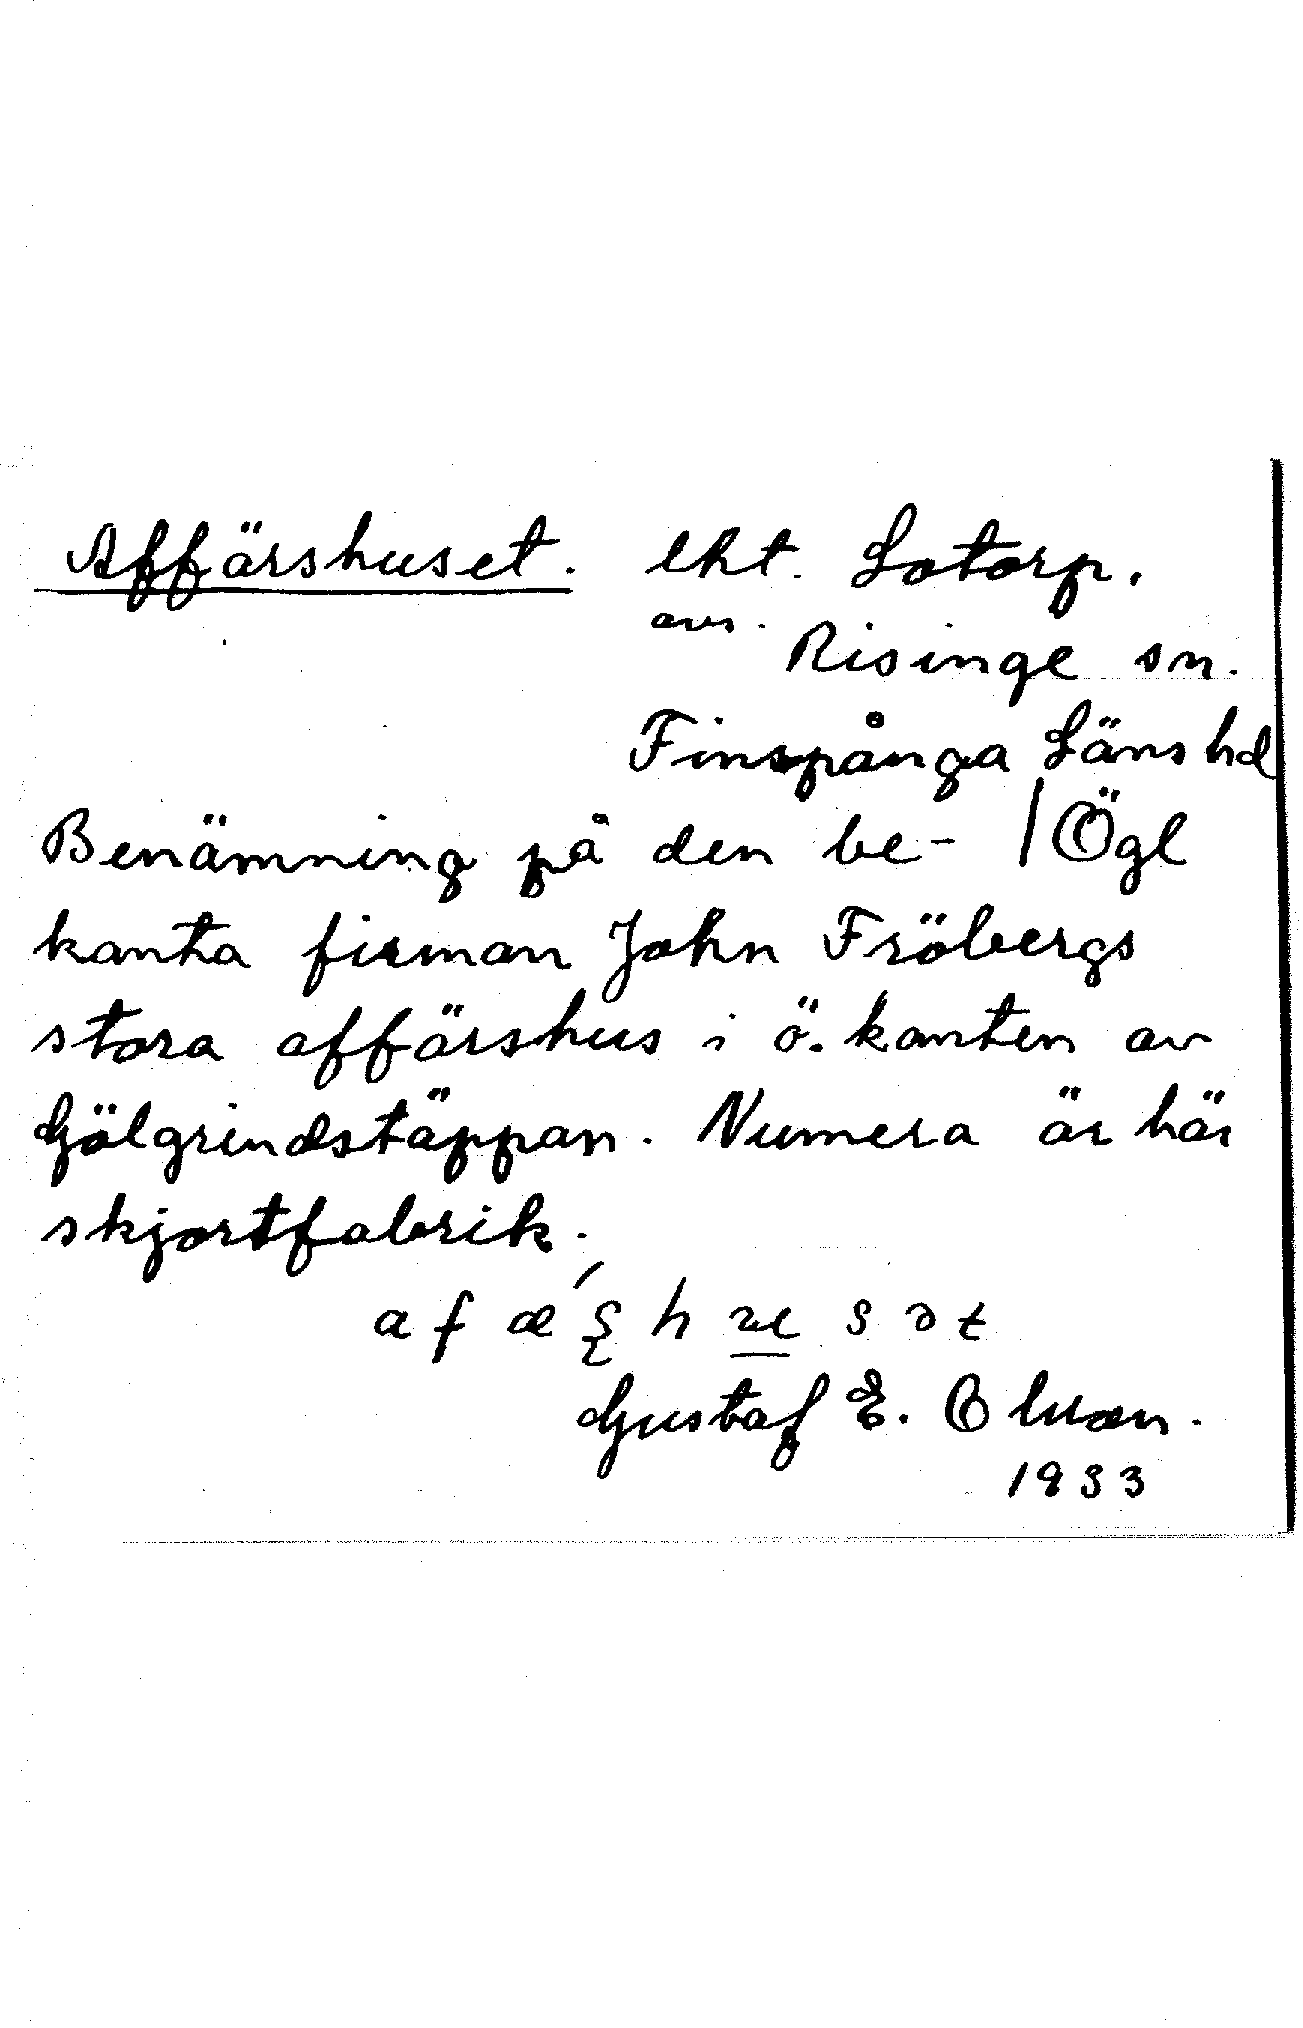 Affärshuset. lht. Lotorp.
avs. Risinge sn.
Finspånga Läns hd
Benämning på den be- / Ögl
kanta firman John Fröbergs
stora affärshus i ö. kanten av
Gölgrindstäppan. Numera är här
skjortfabrik.
a f ǽ
Gustaf E.
1933